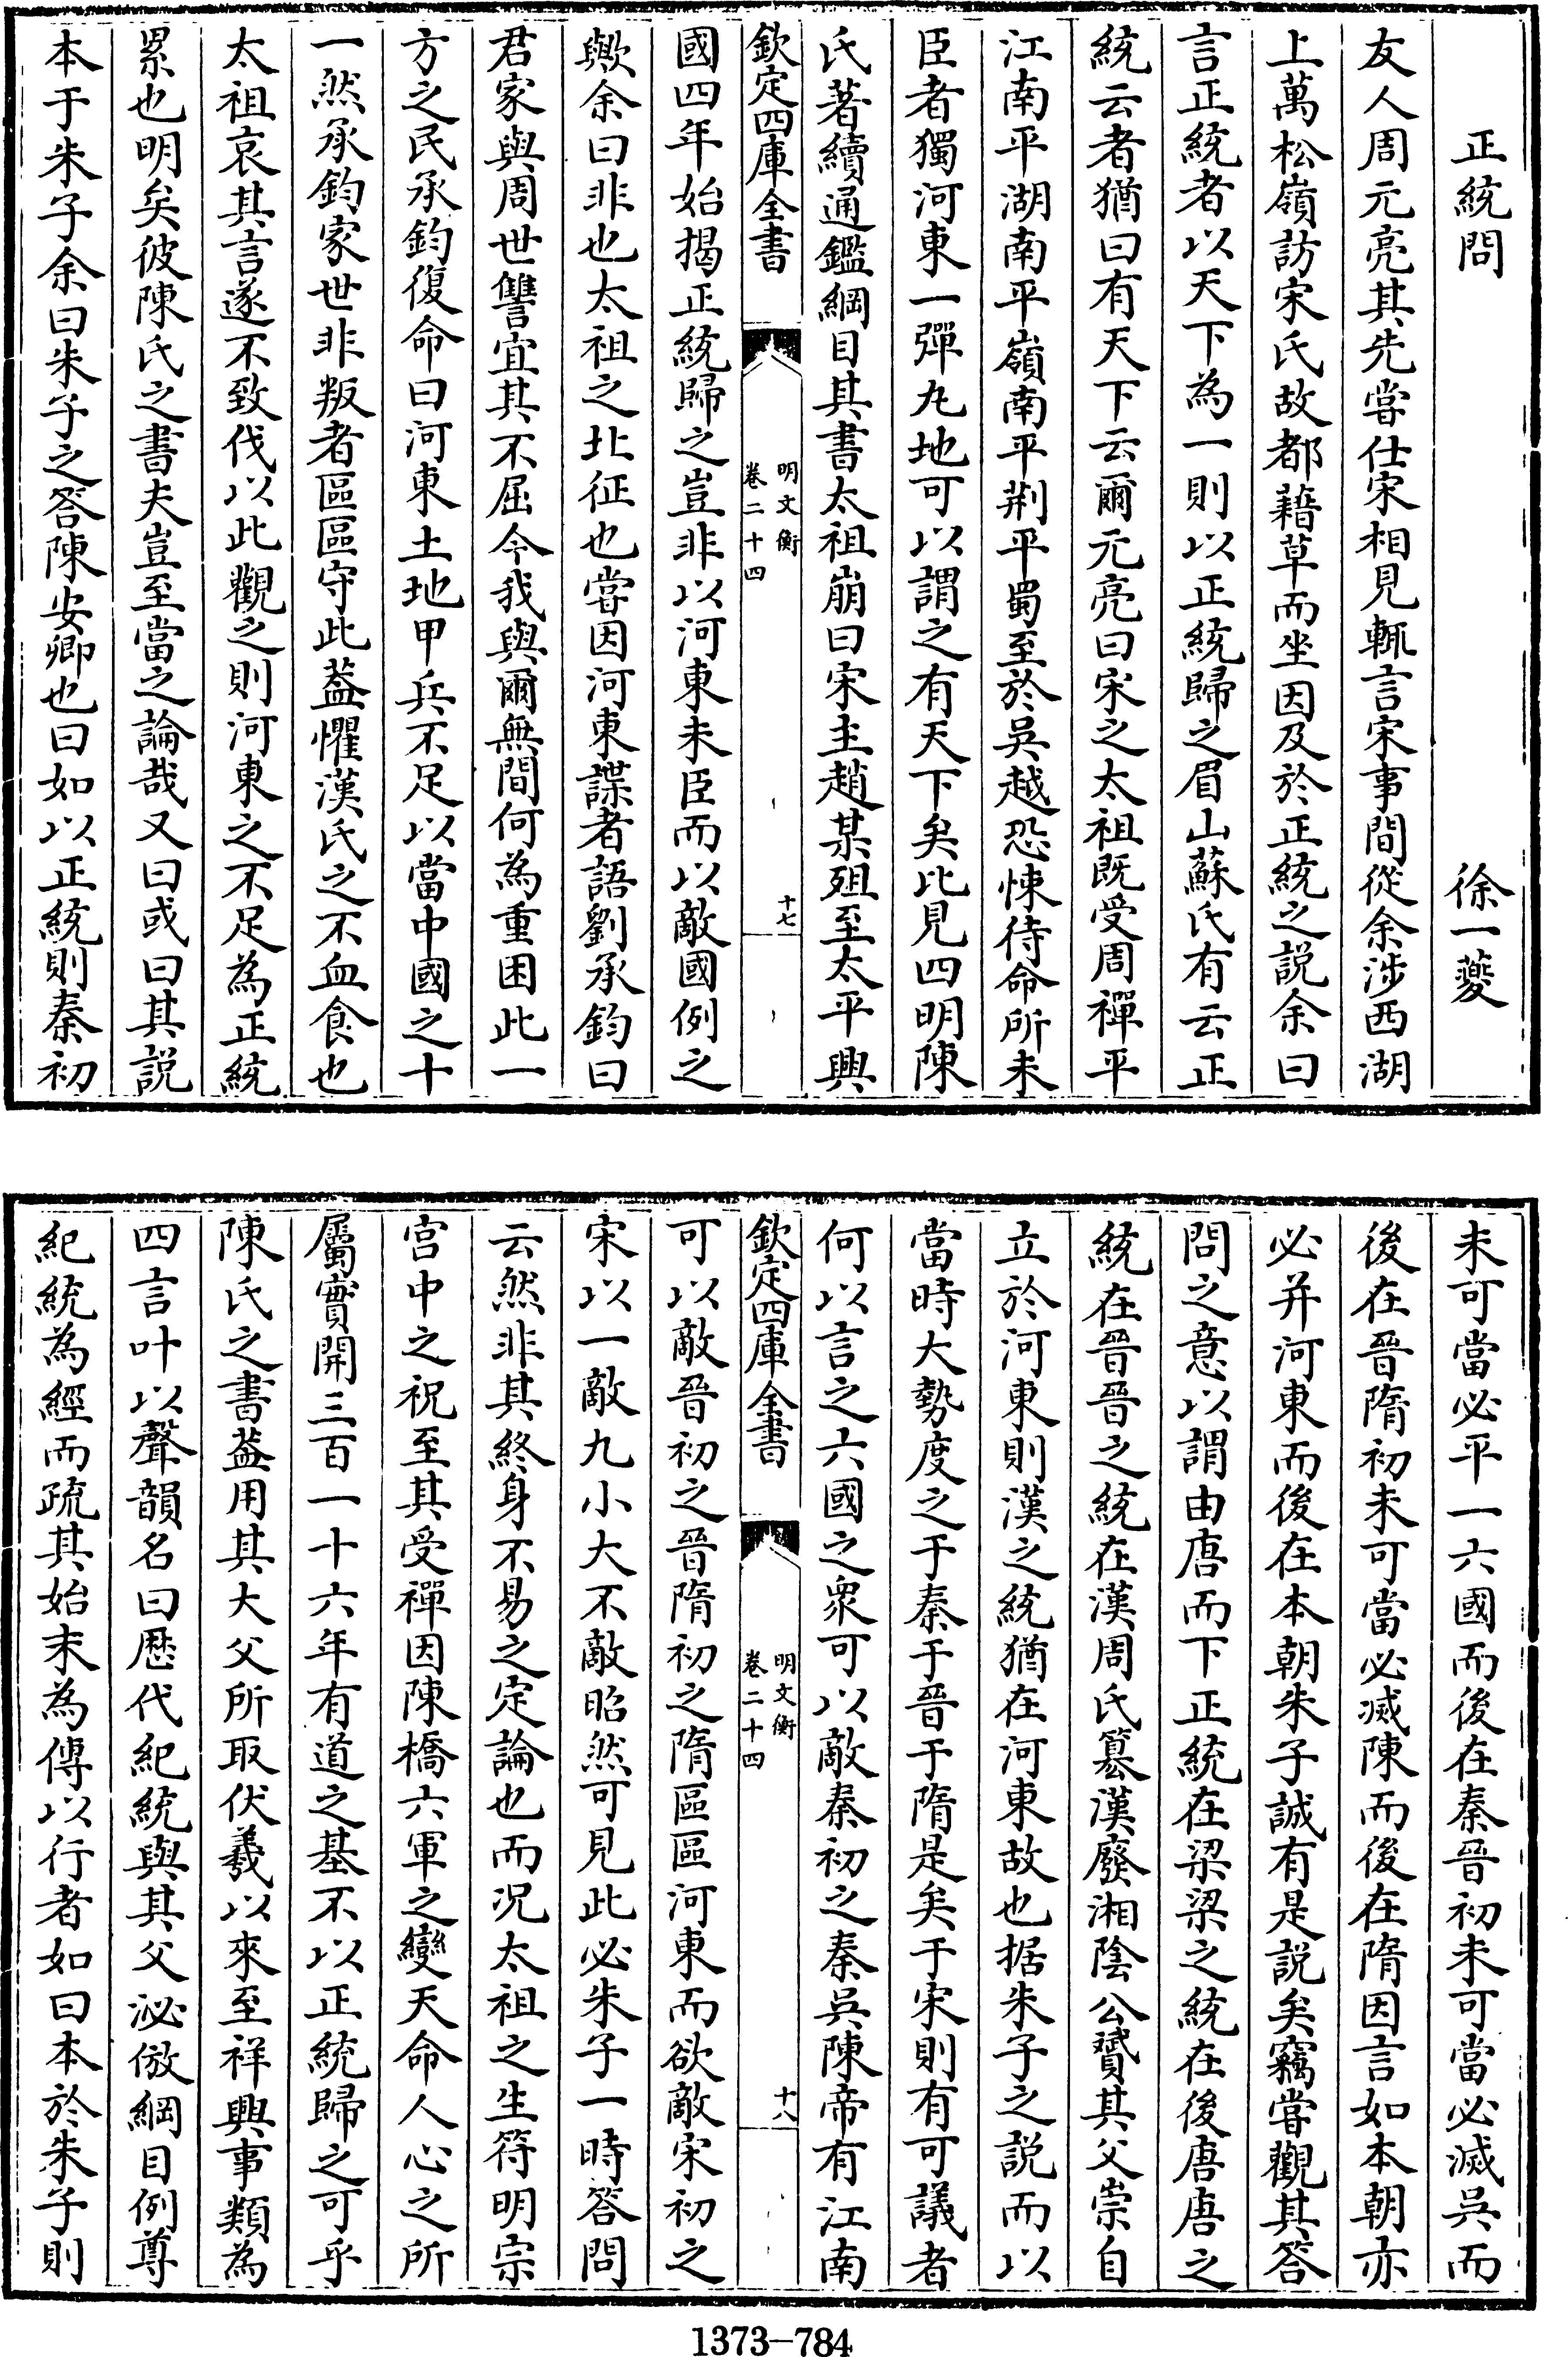 正統問　徐一夔
友人周元亮其先嘗仕宋相見輒言宋事間從余涉西湖
上萬松嶺訪宋氏故都藉草而坐因及於正統之説余曰
言正統者以天下為一則以正統歸之眉山蘇氏有云正
統云者猶曰有天下云爾元亮曰宋之太祖既受周禪平
江南平湖南平嶺南平荆平蜀至於吳越恐悚待命所未
臣者獨河東一彈丸地可以謂之有天下矣比見四明陳
氏著續通鑑綱目其書太祖崩曰宋主趙某殂至太平興
欽定四庫全書　明文衡　卷二十四　十七
國四年始揭正統歸之豈非以河東未臣而以敵國例之
歟余曰非也太祖之北征也嘗因河東諜者語劉承鈞曰
君家與周世讐宜其不屈今我與爾無間何為重困此一
方之民承鈞復命曰河東土地甲兵不足以當中國之十
一然承鈞家世非叛者區區守此蓋懼漢氏之不血食也
太祖哀其言遂不致伐以此觀之則河東之不足為正統
累也明矣彼陳氏之書夫豈至當之論哉又曰或曰其説
本于朱子余曰朱子之答陳安卿也曰如以正統則秦初
未可當必平一六國而後在秦晉初未可當必滅吳而
後在晉隋初未可當必滅陳而後在隋因言如本朝亦
必并河東而後在本朝朱子誠有是説矣竊嘗觀其答
問之意以謂由唐而下正統在梁梁之統在後唐唐之
統在晉晉之統在漢周氏簒漢廢湘陰公贇其父崇自
立於河東則漢之統猶在河東故也据朱子之説而以
當時大勢度之于秦于晉于隋是矣于宋則有可議者
何以言之六國之衆可以敵秦初之秦吳陳帝有江南
欽定四庫全書　明文衡　卷二十四　十八
可以敵晉初之晉隋初之隋區區河東而欲敵宋初之
宋以一敵九小大不敵昭然可見此必朱子一時答問
云然非其終身不易之定論也而况太祖之生符明宗
宫中之祝至其受禪因陳橋六軍之變天命人心之所
屬實開三百一十六年有道之基不以正統歸之可乎
陳氏之書蓋用其大父所取伏羲以來至祥興事類為
四言叶以聲韻名曰歴代紀統與其父泌倣綱目例尊
紀統為經而疏其始末為傳以行者如曰本於朱子則
1373-784